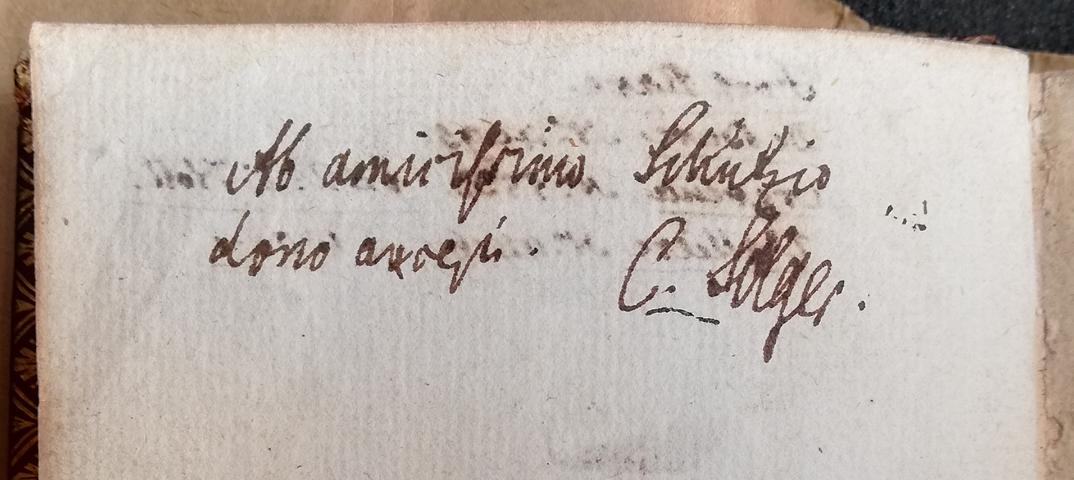 Ab amicissimo Schützio
dono accepi.
C. Solger.